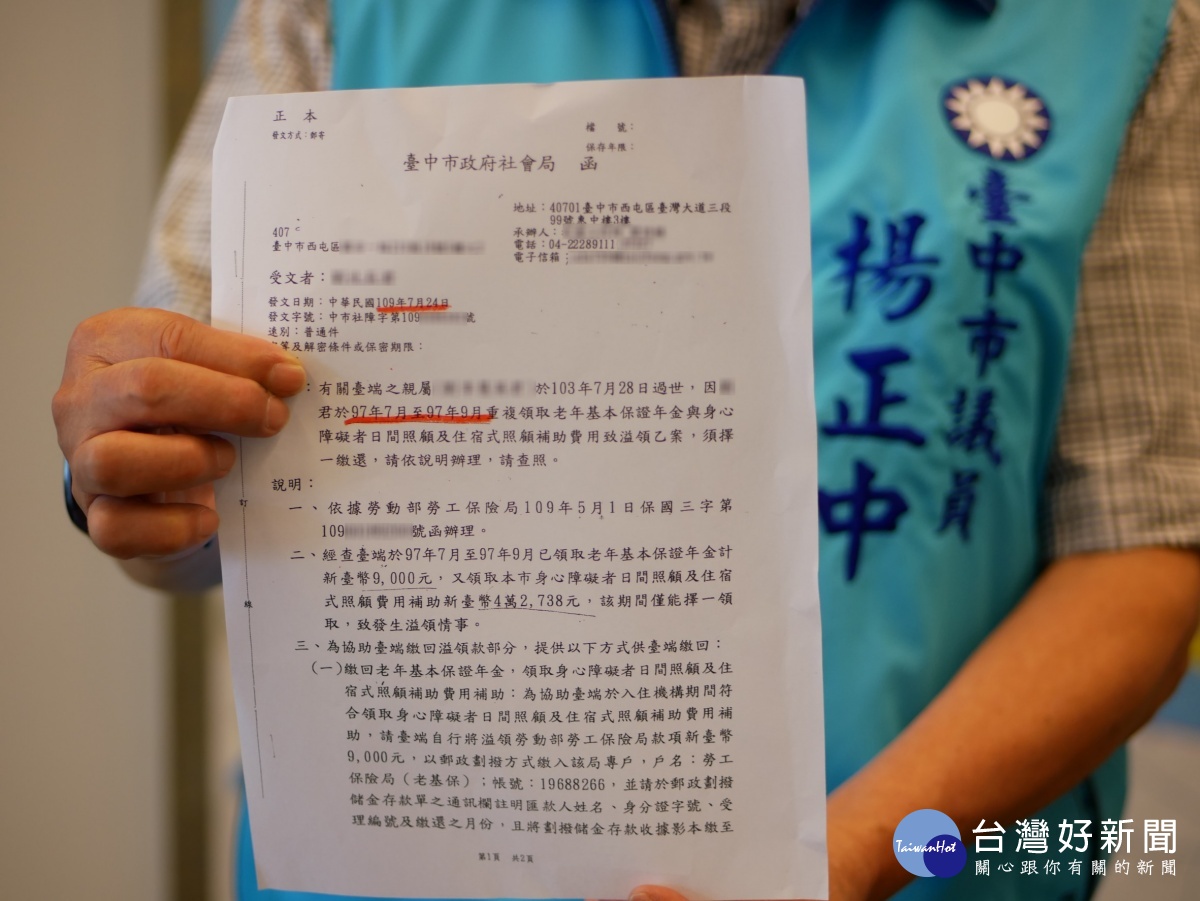 正 本
發文方式：郵寄
檔 號：
保存年限：
臺中市政府社會局 函
地址：40701臺中市西屯區臺灣大道三段
99號惠中樓3樓
承辦人：
電話：04-22289111
電子信箱：
407
臺中市西屯區
受文者：
發文日期：中華民國109年7月24日
發文字號：中市社障字第109 號
速別：普通件
等及解密條件或保密期限：
：有關臺端之親屬 於103年7月28日過世，因
君於97年7月至97年9月重複領取老年基本保證年金與身心
障礙者日間照顧及住宿式照顧補助費用致溢領乙案，須擇
一繳還，請依說明辦理，請查照。
說明：
一、依據勞動部勞工保險局109年5月1日保國三字第
109 號函辦理。
二、經查臺端於97年7月至97年9月已領取老年基本保證年金計
新臺幣9,000元，又領取本市身心障礙者日間照顧及住宿
式照顧費用補助新臺幣4萬2,738元，該期間僅能擇一領
取，致發生溢領情事。
三、為協助臺端繳回溢領款部分，提供以下方式供臺端繳回：
(一)繳回老年基本保證年金，領取身心障礙者日間照顧及住
宿式照顧補助費用補助：為協助臺端於入住機構期間符
合領取身心障礙者日間照顧及住宿式照顧補助費用補
助，請臺端自行將溢領勞動部勞工保險局款項新臺幣
9,000元，以郵政劃撥方式繳入該局專戶，戶名：勞工
保險局（老基保）；帳號：19688266，並請於郵政劃撥
儲金存款單之通訊欄註明匯款人姓名、身分證字號、受
理編號及繳還之月份，且將劃撥儲金存款收據影本繳至
第1頁 共2頁
訂
線
臺中市議員
楊正中
TaiwanHot
台灣好新聞
關心跟你有關的新聞